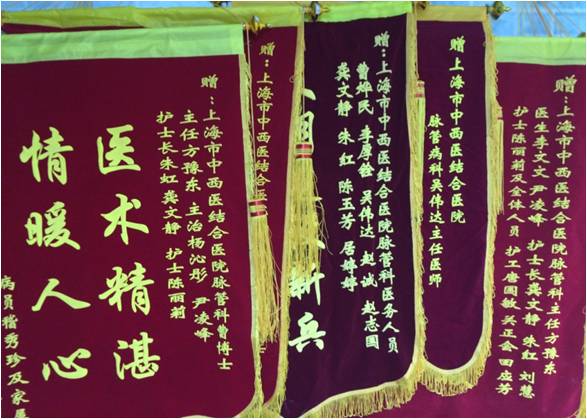 赠：上海市中西医结合医院脉管科主任方豫东
医生李文文 尹凌峰 护士长龚文静 朱红 刘慧
护士陈丽莉及全体人员 护工唐国敏 吴正会 田应芳
赠：上海市中西医结合医院
脉管病科吴伟达主任医师
赠：上海市中西医结合医院脉管科医务人员
曹烨民 李厚铨 吴伟达 赵诚 赵志国
龚文静 朱红 陈玉芳 居婷婷
兵
赠：上海市中西医结合医
赠：上海市中西医结合医院脉管科曹博士
主任方豫东 主治杨沁彤 尹凌峰
护士长朱红 龚文静 护士陈丽莉
医术精湛
情暖人心
病员稽秀珍及家属